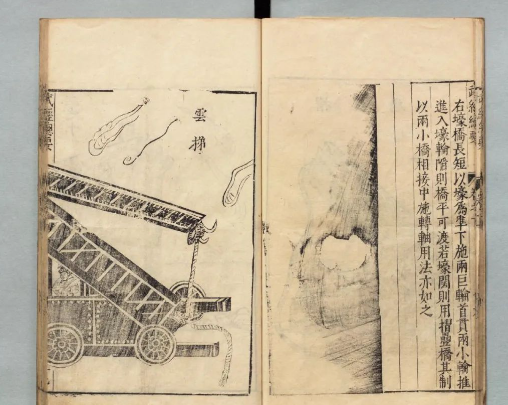 右壕橋長短以壕為準下施兩巨輪首貫兩小輪推
進入壕輪陷則橋平可渡若壕闊則用摺疊橋其制
以兩小橋相接中施轉軸用法亦如之
雲梯